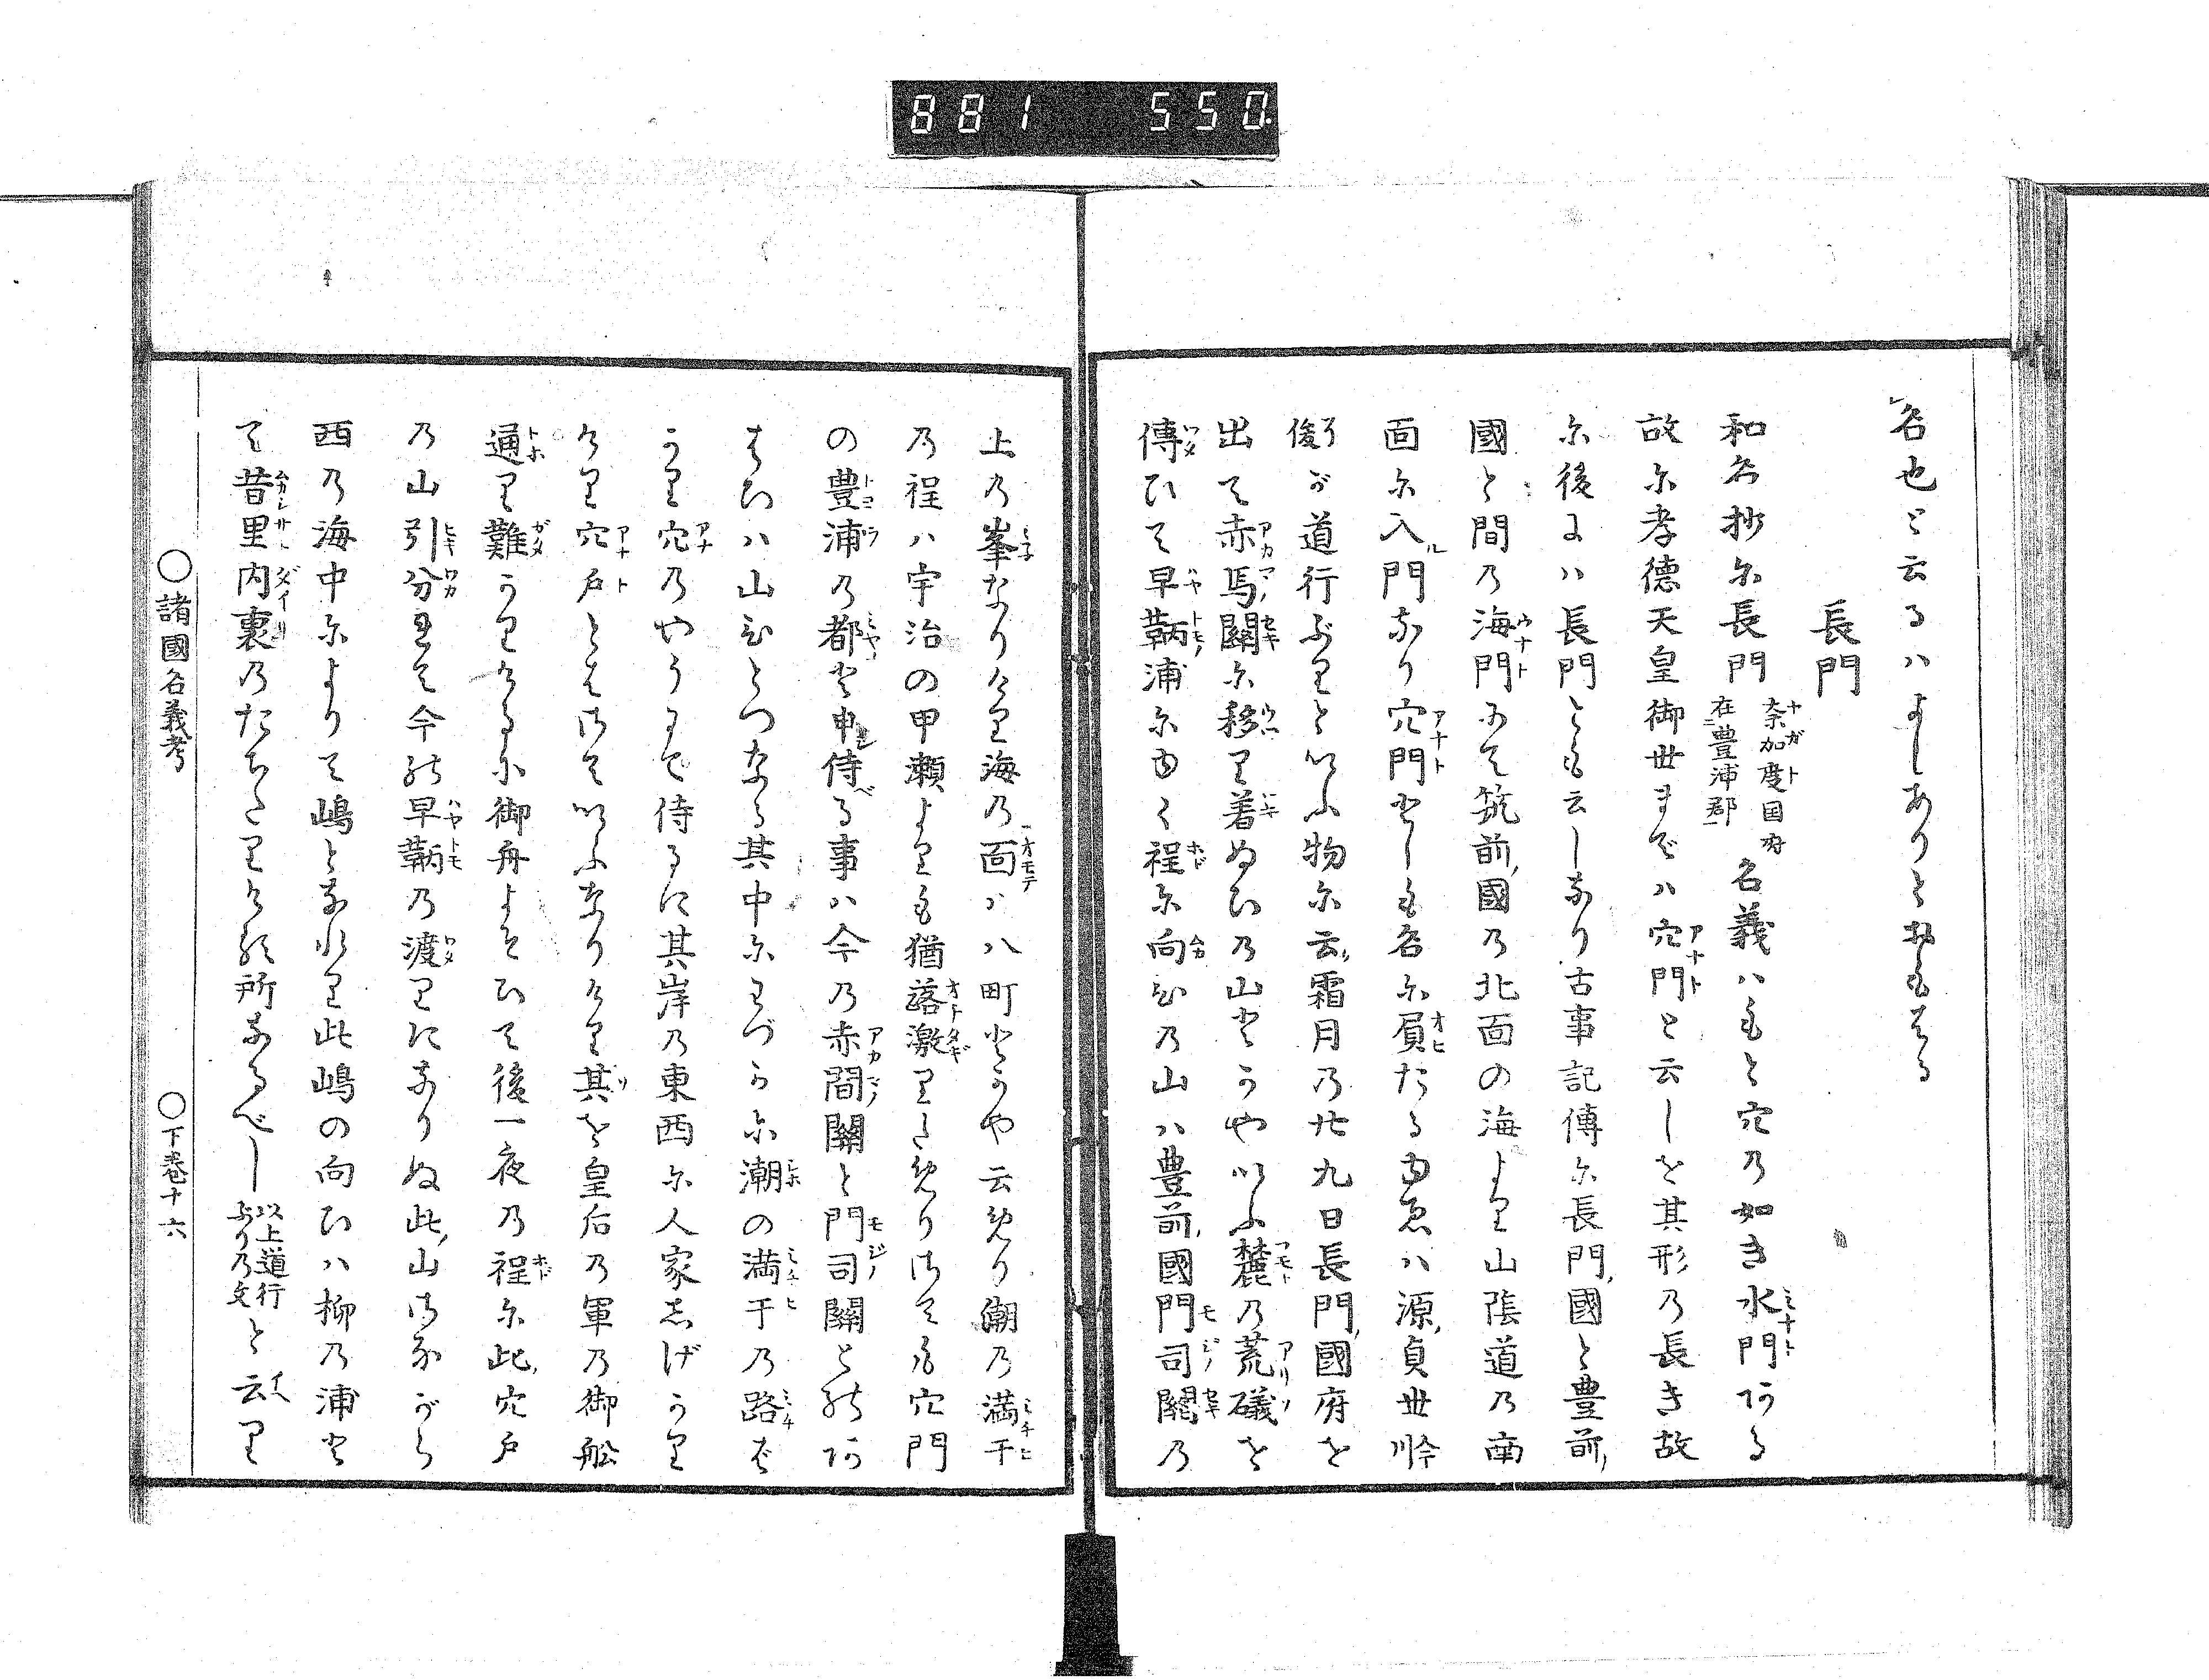 881 550.
名也と云るハよしありとおもはる
長門
和名抄尓長門 奈加度国府在豊浦郡 名義ハもと穴の如き水門ある
故尓孝德天皇御世までハ穴門と云しを其形の長き故
尓後にハ長門とも云しなり古事記傳尓長門國と豊前
國と間乃海門にて筑前國乃北面の海より山陰道乃南
面尓入門なり穴門としも名尓負たるゆゑハ源貞世
俊が道行ぶりといふ物尓云霜月乃廿九日長門國府を
出て赤馬關尓移り着ぬひの山とかやいふ麓乃荒礒を
傳ひて早鞆浦尓ゆく程尓向ひ乃山ハ豊前國門司關乃
上乃峯なりけり海乃面ハ八町とかや云めり潮乃満干
乃程ハ宇治の甲瀬よりも猶落激りためりさても穴門
の豊浦乃都と申侍る事ハ今乃赤間關と門司關とのあ
はひハ山ひとつなる其中尓わづか尓潮の満干乃路ば
かり穴乃やうにて侍るに其岸乃東西尓人家しげかり
けり穴戸とはさていふなりけり其を皇后乃軍乃御舩
通り難かりける小御舟よそひて後一夜乃程尓此穴戸
乃山引分れて今の早鞆乃渡りになりぬ此山さながら
西乃海中尓よりて嶋となれり此嶋の向ひハ柳乃浦と
て昔里内裏乃たちたりける所なるべし 以上道行ぶり乃文 と云り
○諸國名義考 ○下巻十六